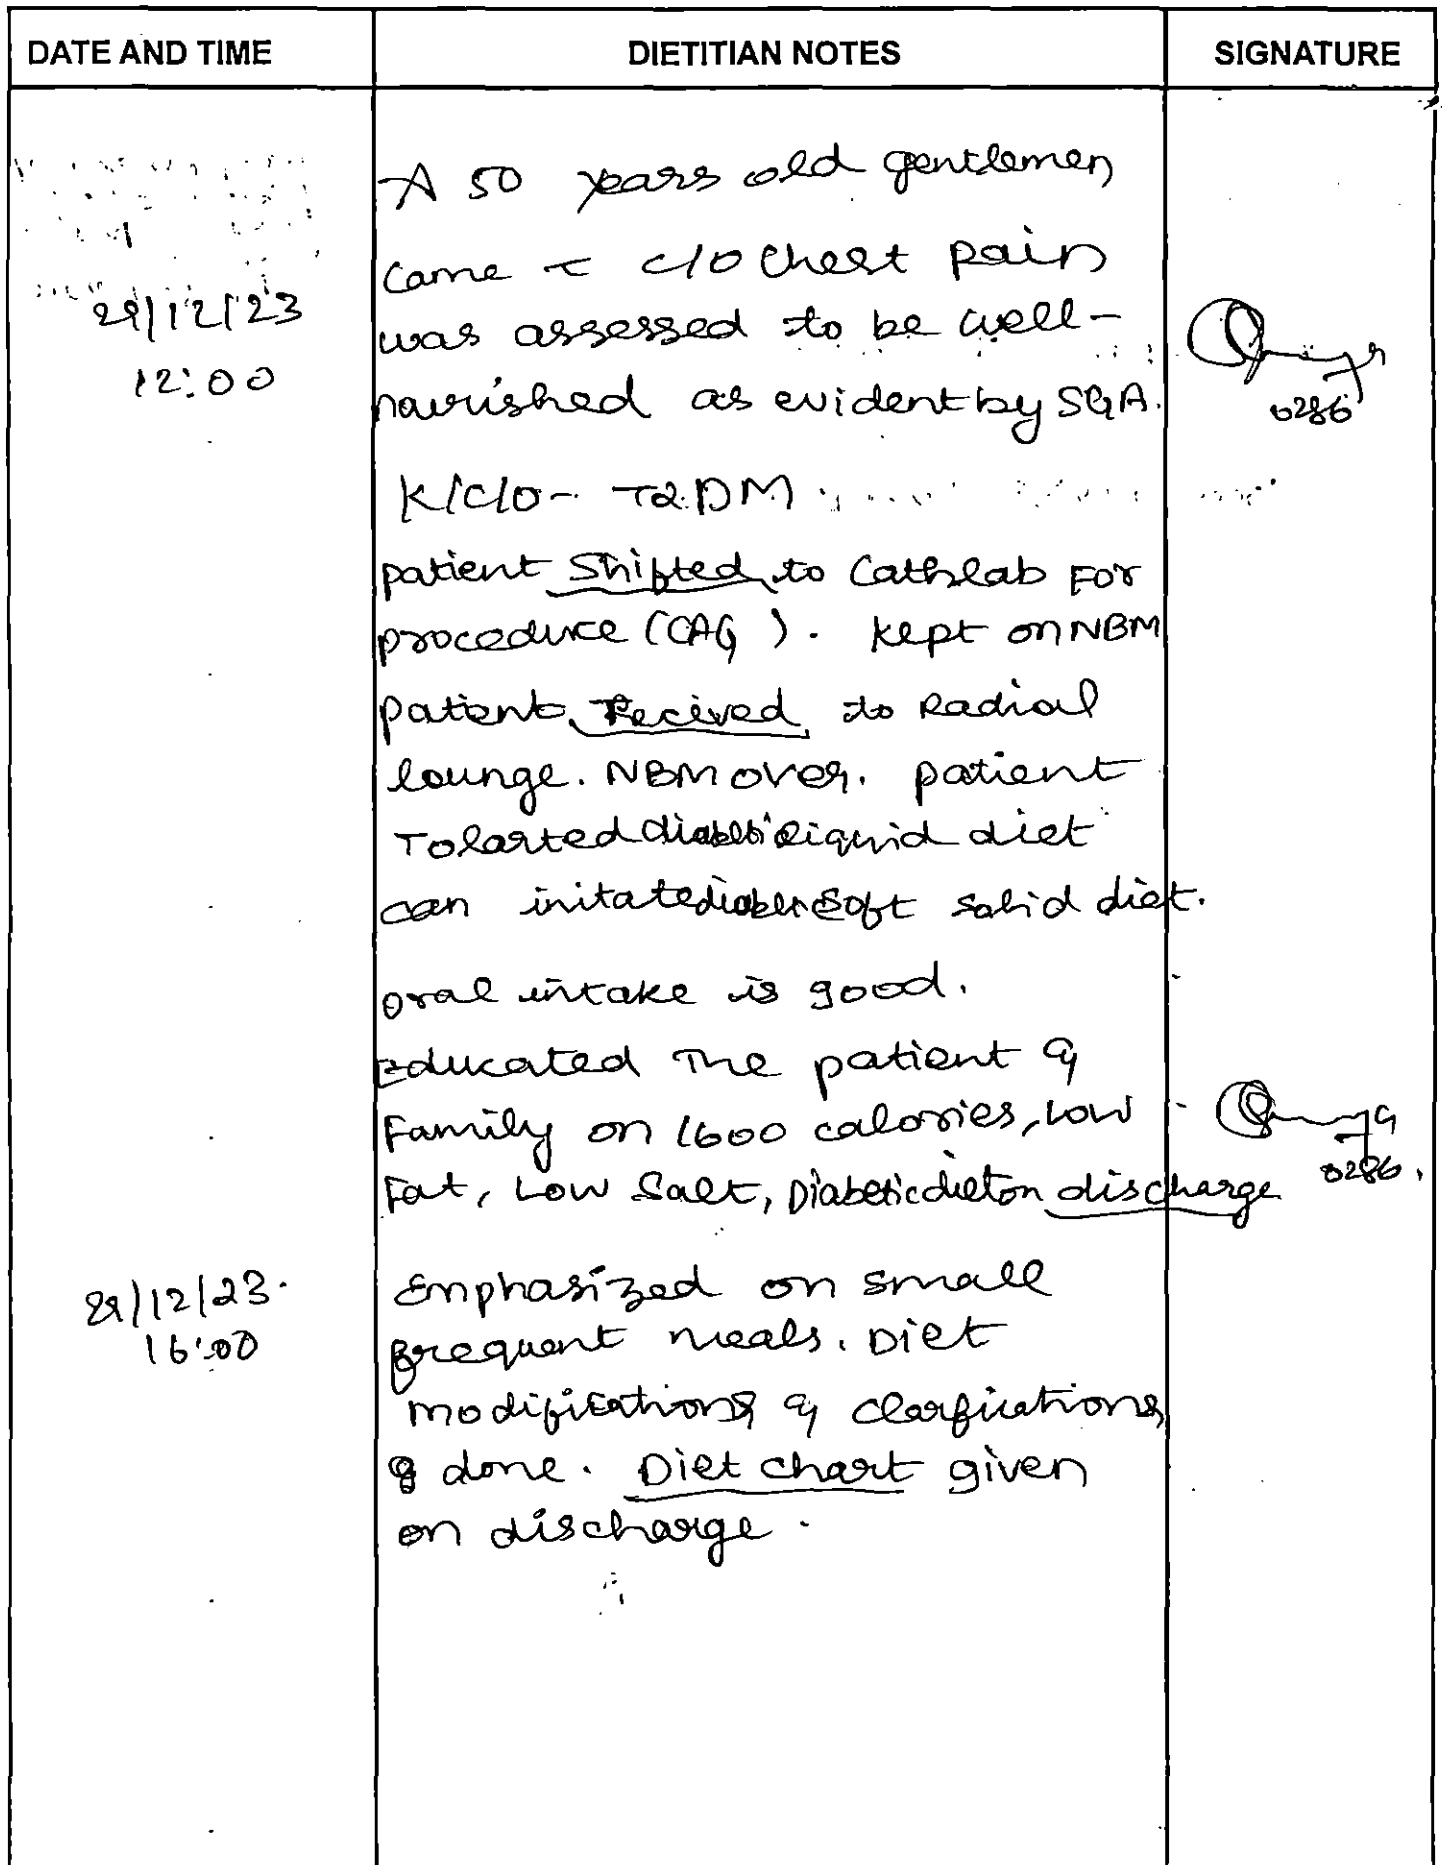 DATE AND TIME DIETITIAN NOTES SIGNATURE
A 50 years old gentlemen
came c c/o chest pain
29/12/23 was assessed to be well-
12:00 nourished as evident by SGA.
0286
K/C/O - T2DM
patient Shifted to Cathlab For
procedure (CAG). kept on NBM
patient Recived to Radial
lounge. NBM over. patient
Tolarted diabetic liquid diet
can initate diabetic soft solid diet.
oral intake is good.
Educated The patient &
Family on 1600 calories, Low
Fat, Low Salt, Diabetic diet on discharge 0286.
29/12/23. Emphasized on small
16:00 frequent meals. Diet
modifications & clarfications
done. Diet chart given
on discharge.